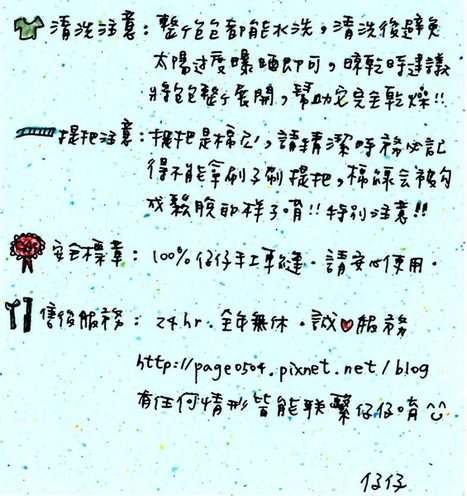 清洗注意：整個包包都能水洗，清洗後避免
太陽過度曝晒即可，晾乾時建議
將包包整個展開，幫助它完全乾燥!!
提把注意：提把是棉心，請清潔時務必記
得不能拿刷子刷提把，棉線會被勾
成鬆脫的樣子唷!! 特別注意!!
安全標章：100%仔仔手工車縫．請安心使用．
售後服務：24hr．全年無休．誠❤服務
http://page0504.pixnet.net/blog
有任何情形皆能聯繫仔仔唷
仔仔